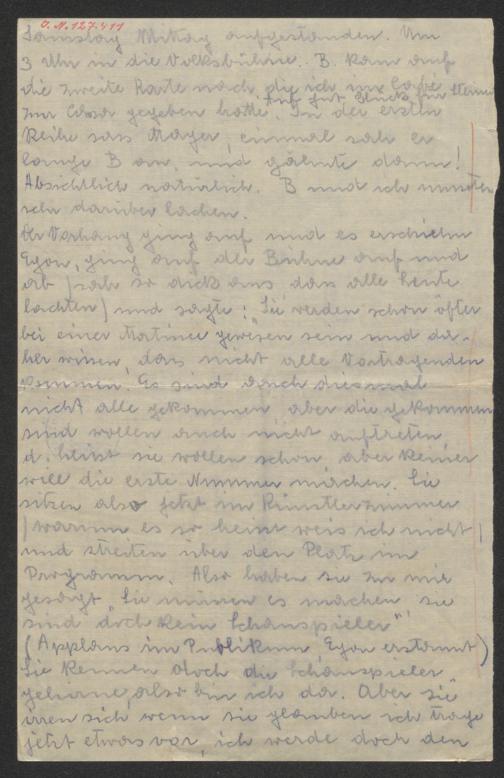 J.N. 127.411
Samstag Mittag aufgestanden. Um
3 Uhr in die Volksbühne. B. kam auf
die zweite Karte nach, die ich zur Loge
zur Cassa gegeben hatte. In der ersten
Reihe sass Mayer, einmal sah er
lange B an, und gähnte dann!
Absichtlich natürlich. B und ich mussten
sehr darüber lachen.
Der Vorhang ging auf und es erschien
Egon, ging auf der Bühne auf und
ab (sah so dick aus das alle Leute
lachten) und sagte: "Sie werden schon öfter
bei einer Matinee gewesen sein und da-
her wissen, dass nicht alle Vortragenden
kommen. Es sind auch diesmal
nicht alle gekommen aber die gekommen
sind wollen auch nicht auftreten,
d. heist sie wollen schon, aber keiner
will die erste Nummer machen. Sie
sitzen also jetzt im Künstlerzimmer
(warum es so heist weis ich nicht)
und streiten über den Platz im
Programm. Also haben sie zu mir
gesagt "Sie müssen es machen sie
sind doch kein Schauspieler"
(Applaus im Publikum, Egon erstaunt)
Sie kennen doch die Schauspieler
gehirne, also bin ich da. Aber sie
irren sich wenn sie glauben ich trage
jetzt etwas vor, ich werde doch den